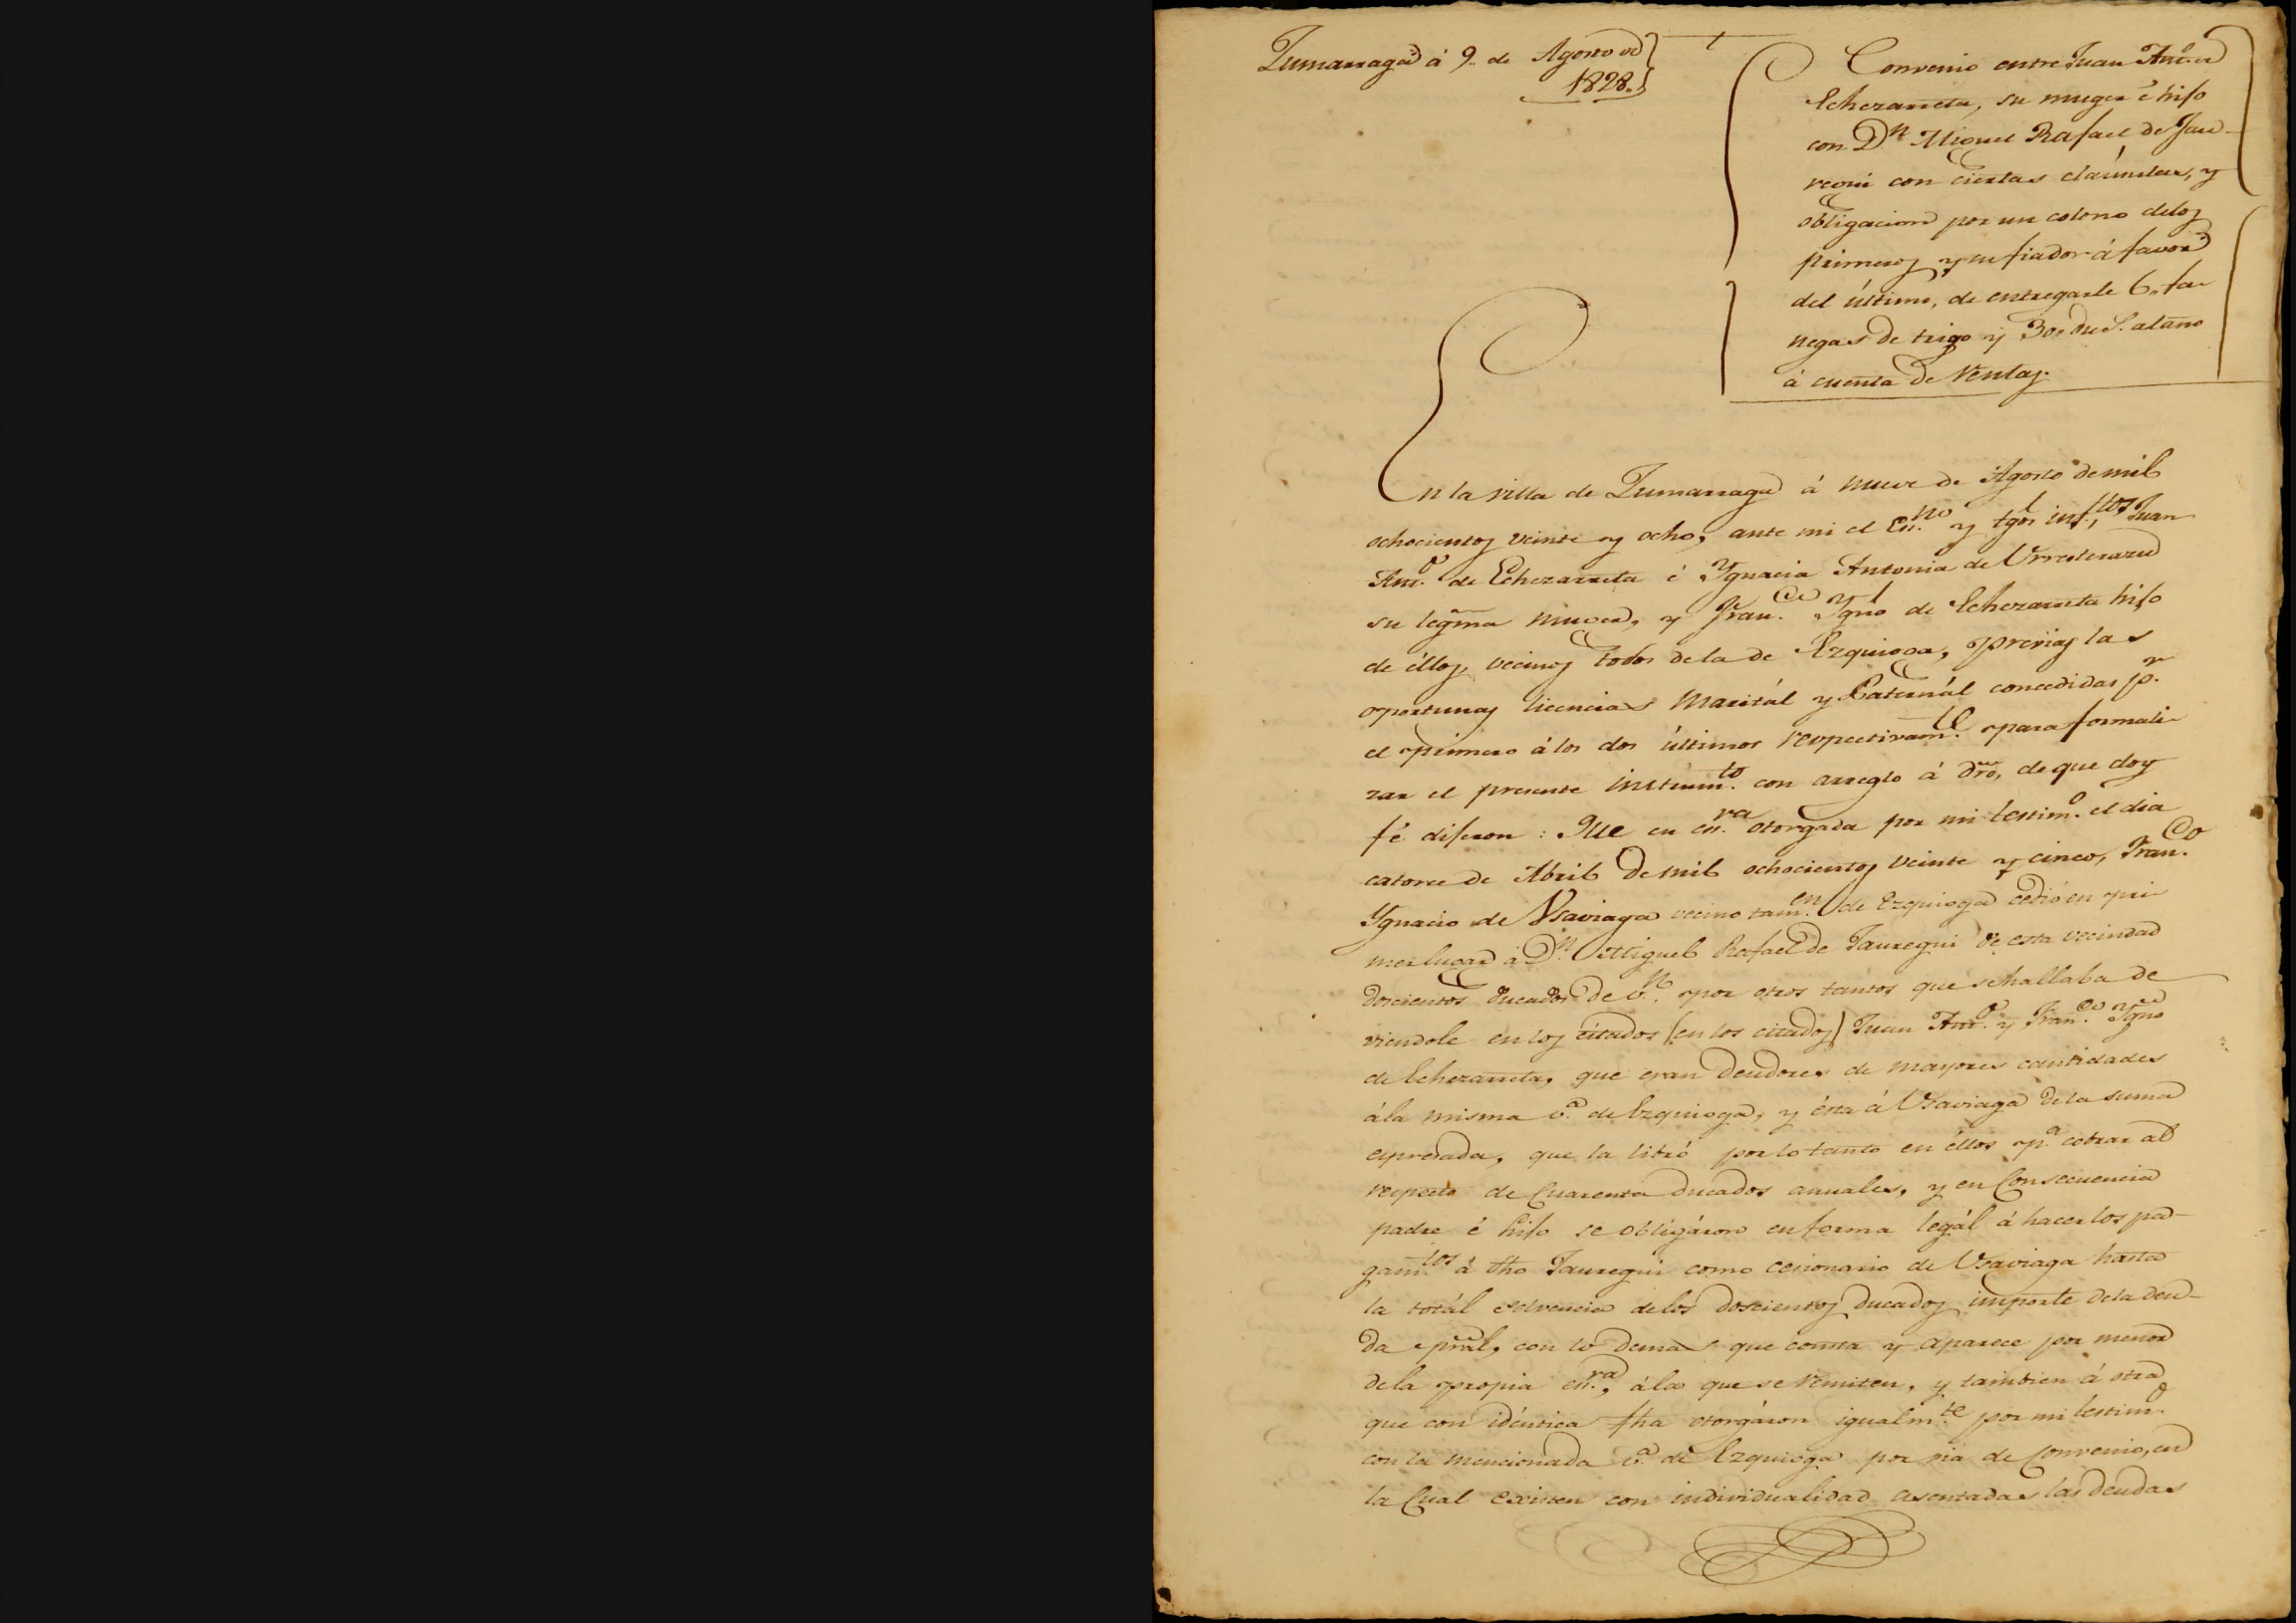 Zumarraga à 9. de Agosto de
1828.
Convenio entre Juan Antº de
Echezarreta, su muger é hijo
con Dn Miguel Rafael de Jau-
regui con ciertas cláusulas, y
obligacion por un colono delos
primeros y su fiador á favor
del último, de entregarle 6. fa-
negas de trigo y 30. du.s al año
à cuenta de rentas.
En la villa de Zumarraga á nueve de Agosto de mil
ochocientos veinte y ocho, ante mi el Es.no y tgos inf.tos, Juan
Ant.º de Echezarreta é Ygnacia Antonia de Urresterazu
su legma muger, y Fran.co Ygno de Echezarreta hijo
de éllos, vecinos todos dela de Ezquioga, previas las
oportunas licencias Maritál y Paternál concedidas p.r
el primero álos dos últimos respectivam.te para formali-
zar el presente instrum.to con arreglo á dro, de que doy
fé dijeron: Que en es.ra otorgada por mi testim.º el dia
catorce de Abril de mil ochocientos veinte y cinco, Fran.co
Ygnacio de Usaviaga vecino tam.en de Ezquioga cedió en pri-
mer lugar à D.n Miguel Rafael de Jauregui de esta vecindad
doscientos ducados de v.n por otros tantos que se hallaba de-
viendole en los citados (en los citados) Juan Ant.º y Fran.co Ygno
de Echezarreta, que eran deudores de mayores cantidades
ála misma v.a de Ezquioga, y ésta á Usaviaga dela suma
expresada, que la libró por lo tanto en éllos p.a cobrar al
respecto de Cuarenta ducados anuales, y en Consecuencia
padre é hijo se obligáron en forma legál á hacer los pa-
gam.tos á dho Jauregui como cesionario de Usaviaga hasta
la totál solvencia delos doscientos ducados importe dela deu-
da pral, con lo demas que consta y aparece por menor
dela propia es.ra, ála que se remiten, y tambien á otra
que con idéntica fha otorgáron igualm.te por mi testim.º
con la mencionada v.a de Ezquioga por via de Convenio, en
la Cual existen con individualidad asentadas las deudas